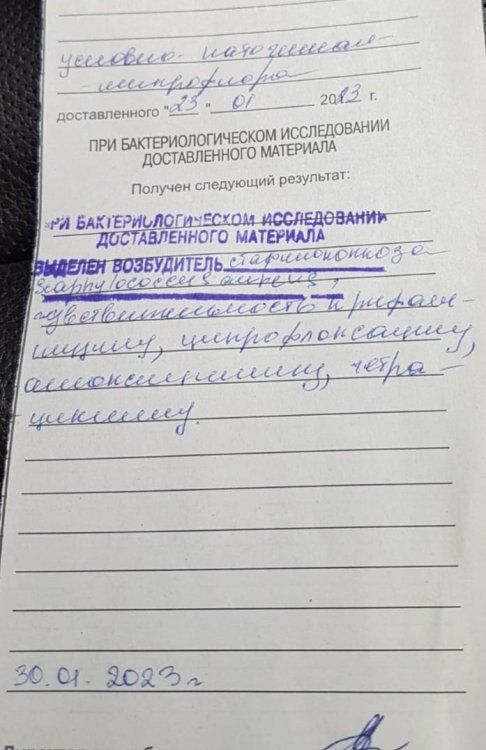 условно-патогенная
микрофлора
доставленного "23" 01 2023 г.
ПРИ БАКТЕРИОЛОГИЧЕСКОМ ИССЛЕДОВАНИИ
ДОСТАВЛЕННОГО МАТЕРИАЛА
Получен следующий результат:
ПРИ БАКТЕРИОЛОГИЧЕСКОМ ИССЛЕДОВАНИИ
ДОСТАВЛЕННОГО МАТЕРИАЛА
ВЫДЕЛЕН ВОЗБУДИТЕЛЬ стафилококкоза
aureus,
чувствительность к рифам-
пицину, ципрофлоксацину,
амоксициллину, тетра-
циклину.
30.01.2023 г